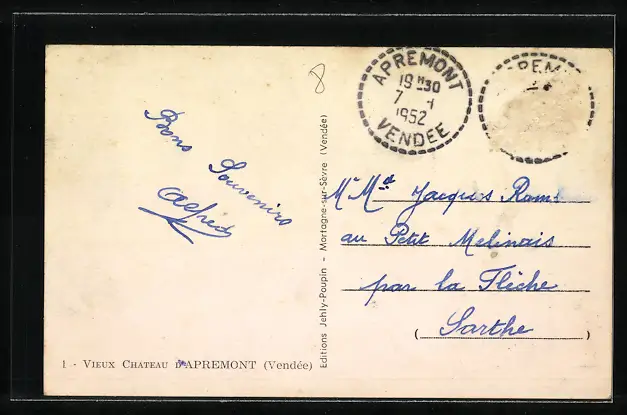 8
Bons Souvenirs
Alfred
1 - VIEUX CHATEAU D'APREMONT (Vendée)
Editions Jehly-Poupin - Mortagne-sur-Sèvre (Vendée)
APREMONT
19 H 30
7 - 1
1952
VENDEE
Mr Me Jacques
au Petit Melinais
par la Flèche
(Sarthe)